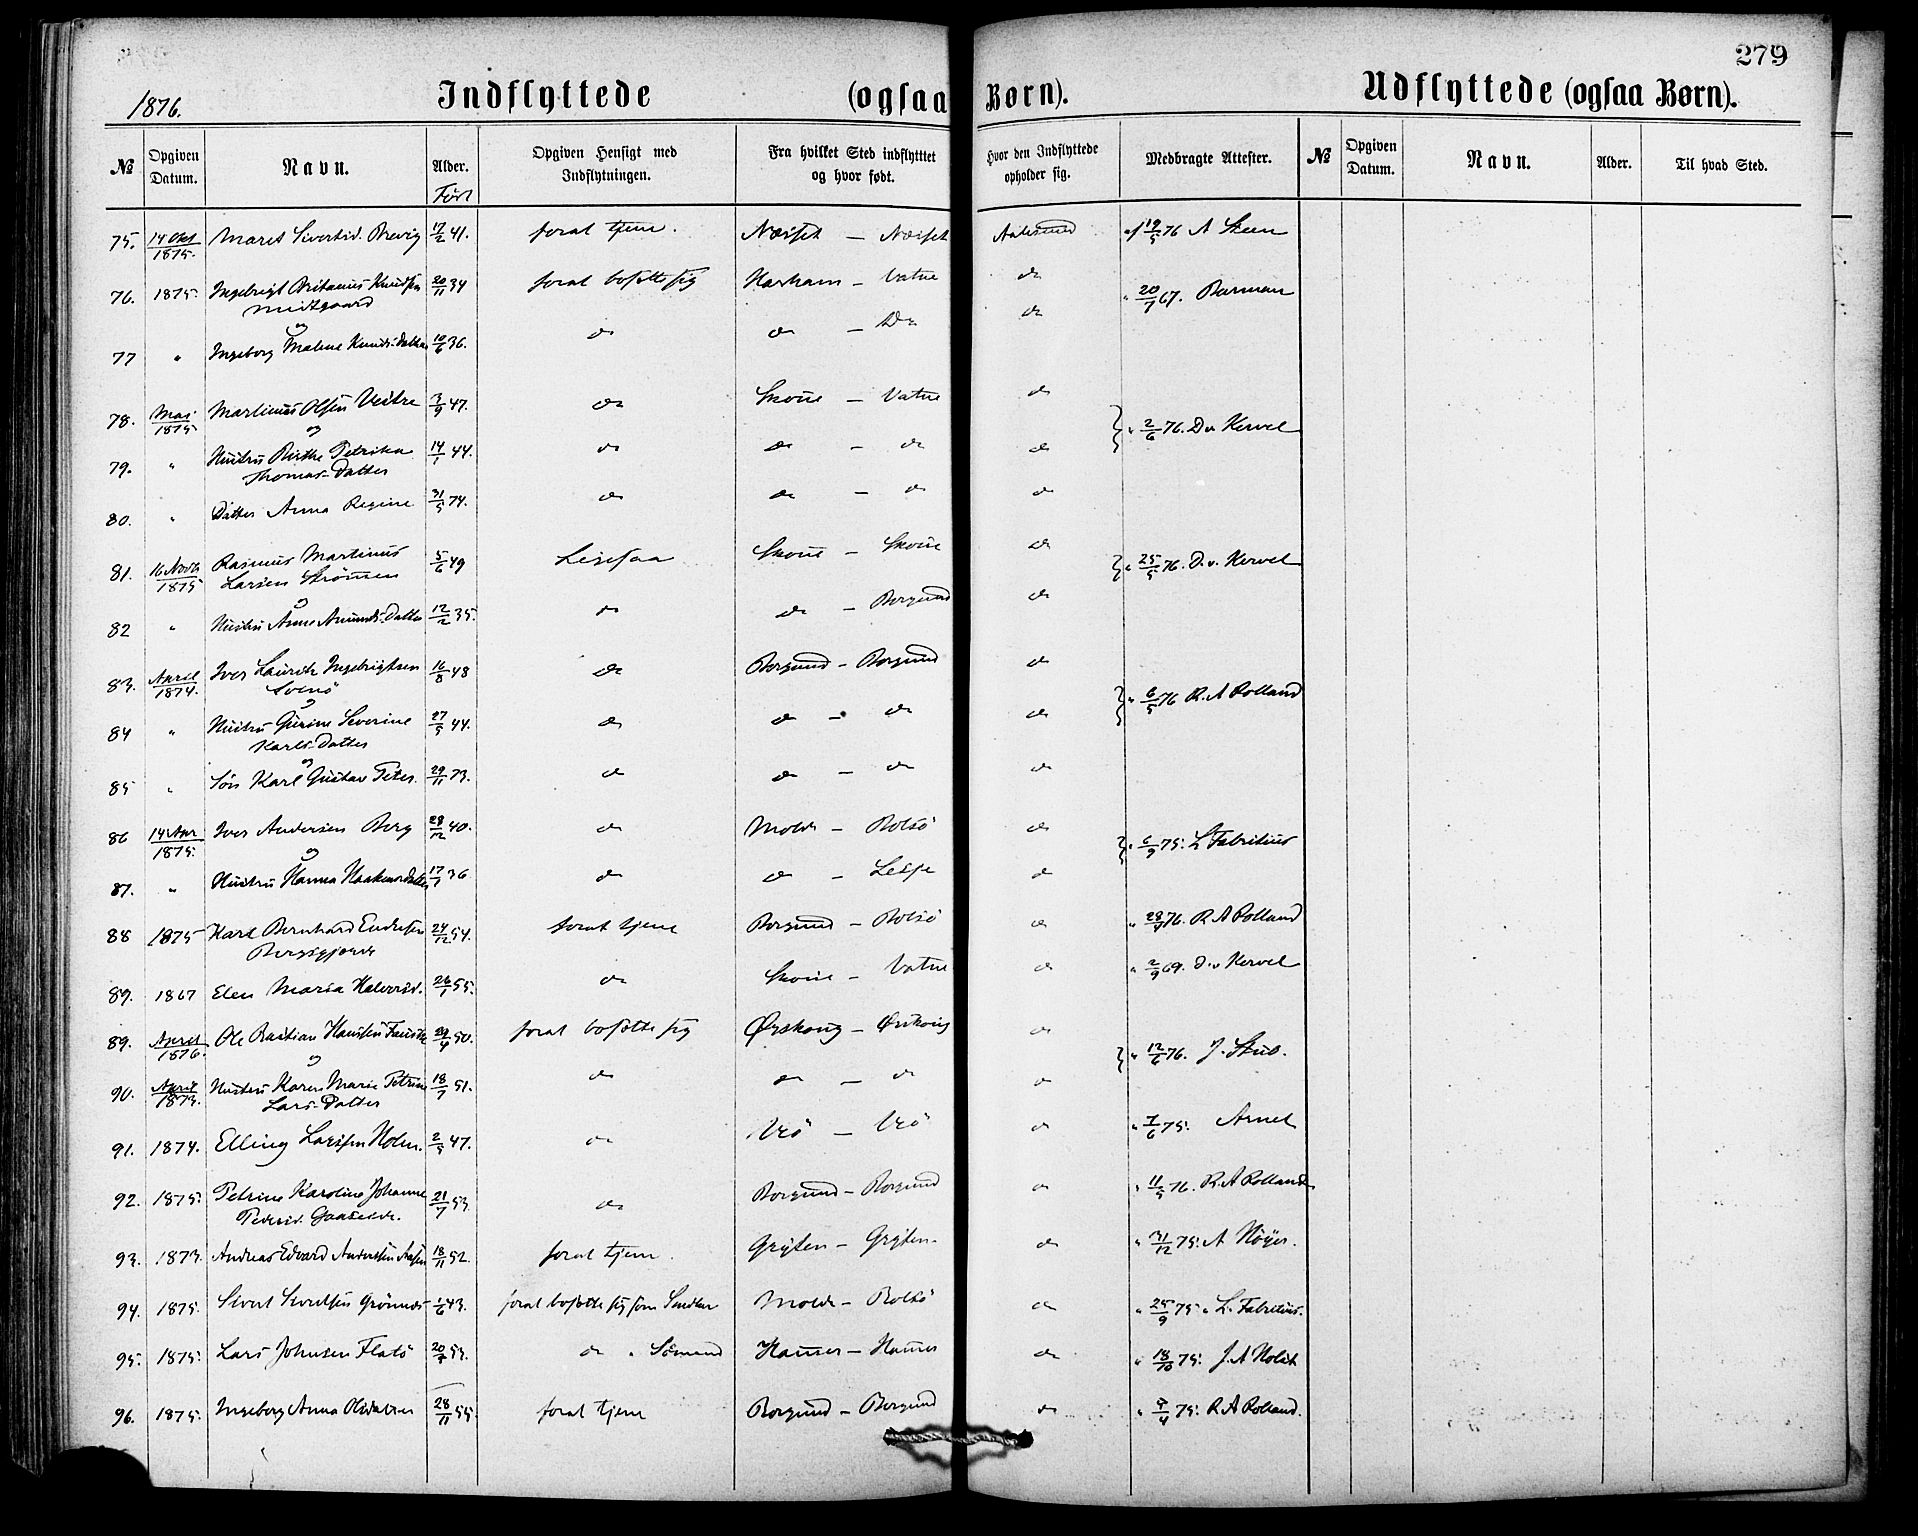 279
1876. Indflyttede (ogsaa Børn). Udflyttede (ogsaa Børn).
№ Opgiven Datum. Navn. Alder. Opgiven Hensigt med Indflytningen. Fra hvilket Sted indflyttet og hvor født. Hvor den Indflyttede opholder sig. Medbragte Attester. № Opgiven Datum. Navn. Alder. Til hvad Sted.
Født
75. 14 Okt 1875. Maret Sivertsd. Brevig 17/2 41. forat tjene. Næsset — Næsset Aalesund af 19/5 76 A Steen
76. 1875. Ingebrigt Knudsen 20/11 34 forat bosætte sig Harham — Vatne do " 20/7 67. Barman
Midtgaard do
og
77 " Ingeborg Malene Knuds-Datter 10/6 36. do do — Do
78. Mai 1875 Martinus Olsen Vestre 3/9 47. do Skoue — Vatne do } " 2/6 76. D v. Kervel
og
79. " Hustru Birthe Petrika 14/1 44. do do — do do
Thomas-Datter
80. " Datter Anna Regine 31/5 74. do do — do do
81. 16 Novb 1875 Rasmus Martinus 5/6 49 Ligesaa Skoue — Skoue do } " 25/5 76. D. v. Kervel
Larsen Strømmen
og
82 " Hustru Anne Amunds-Datter 12/2 35. do do — Borgund do
83. April 1874. Iver Lauritz Ingebrigtsen 16/8 48 do Borgund — Borgund do } " 6/5 76 R. A Rolland
og
84 " Hustru Gurine Severine 27/5 44. do do — do do
Karls-Datter
og
85 " Søn Karl Gustav Peter. 29/11 73. do do — do do
86 14 Apr 1875. Iver Andersen Berg 28/12 40. do Molde — Bolsø do } " 6/9 75. L Fabritius
og
87. " Hustru Hanna Haakensdatter 17/7 36 do do — Lesje do
88 1875 Karl Bernhard Endresen 24/12 54. forat tjene Borgund — Bolsø do " 28/4 76. R A Rolland
89. 1867 Elen Maria Halvorsd. 26/1 55. do Skoue — Vatne do " 2/9 69. D. v Kervel
89. April 1876. Ole Bastian Hansen 29/4 50. forat bosætte sig Ørskoug — Ørskoug do } " 12/6 76. J. Stub.
og
90. April 1873. Hustru Karen Marie Petrine 18/7 51. do do — do do
Lars-Datter
91. 1874. Elling Larssen Holm. 2/5 47. do Veø — Veø do " 7/6 75. Arnet
92. 1875. Petrine Karoline Johanne 21/7 53. do Borgund — Borgund do " 11/5 76. R. A Rolland
Pedersd. Gaaseide.
93. 1873. Andreas Edvard Anderssen 18/11 52. forat tjene. Gryten — Gryten. do " 31/12 75. A Höyer.
94. 1875. Sivert Sivertsen 1/6 43. forat bosætte sig som Snedker Molde — Bolsø do " 25/9 75 L. Fabritius.
95. 1875. Lars Johnsen Flatø 20/7 53. do " Sømand Hammer — Hammer do " 18/10 75. J. A Holst
96. 1875. Ingeborg Anna Olsdatter 28/11 55. forat tjene Borgund — Borgund do " 9/4 75. R A Rolland.